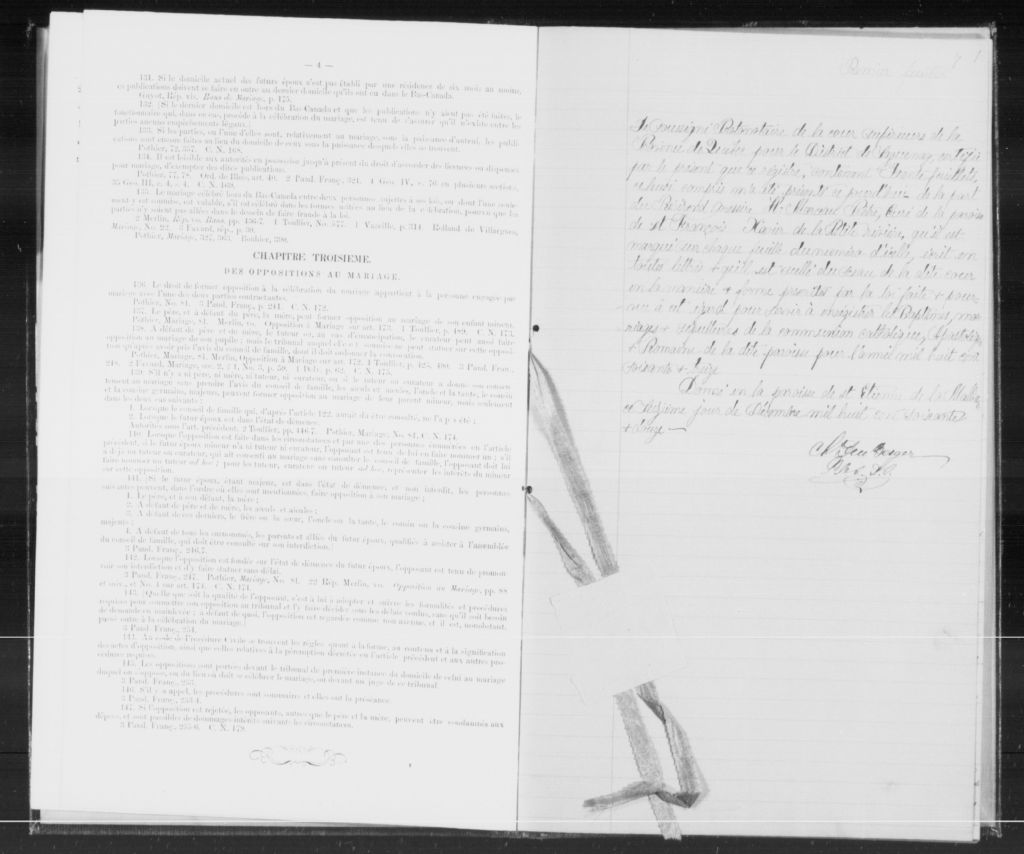 — 4 —
131. Si le domicile actuel des futurs époux n'est pas établi par une résidence de six mois au moins,
les publications doivent se faire en outre au dernier domicile qu'ils ont eu dans le Bas-Canada.
Guyot, Rép. vis. Bans de Mariage, p. 175.
132. [Si le dernier domicile est hors du Bas-Canada et que les publications n'y aient pas été faites, le
fonctionnaire qui, dans ce cas, procède à la célébration du mariage, est tenu de s'assurer qu'il n'existe entre les
parties aucun empêchements légaux.]
133. Si les parties, ou l'une d'elles, sont, relativement au mariage, sous la puissance d'autrui, les publi-
cations sont encore faites au lieu du domicile de ceux sous la puissance desquels elles se trouvent.
Pothier, 72, 357. C. N. 168.
134. Il est loisible aux autorités en possession jusqu'à présent du droit d'accorder des licences ou dispenses
pour mariage, d'exempter des dites publications.
Pothier, 77, 78. Ord. de Blois, art. 40. 2 Pand. Franç. 321. 4 Geo. IV, c. 76 en plusieurs sections.
35 Geo. III, c. 4, s. 4. C. N. 169.
135. Le mariage célébré hors du Bas-Canada entre deux personnes sujettes à ses lois, ou dont l'une seule-
ment y est soumise, est valable, s'il est célébré dans les formes usitées au lieu de la célébration, pourvu que les
parties n'y soient pas allées dans le dessein de faire fraude à la loi.
2 Merlin, Rép. vo. Bans, pp. 456-7. 1 Toullier, No. 577. 1 Vazeille, p. 314. Rolland de Villargues,
Mariage, No. 22. 3 Favard, rép. p. 39.
Pothier, Mariage, 327, 363. Bouhier, 390.
CHAPITRE TROISIEME.
DES OPPOSITIONS AU MARIAGE.
136. Le droit de former opposition à la célébration du mariage appartient à la personne engagée par
mariage avec l'une des deux parties contractantes.
Pothier, No. 81. 3 Pand. Franç. p. 241. C. N. 172.
137. Le père, et à défaut du père, la mère, peut former opposition au mariage de son enfant mineur.
Pothier, Mariage, 81. Merlin, vo. Opposition à Mariage sur art. 173. 1 Toullier, p. 489. C. N. 173.
138. A défaut de père et de mère, le tuteur ou, au cas d'émancipation, le curateur peut aussi faire
opposition au mariage de son pupille; mais le tribunal auquel elle est soumise ne peut statuer sur cette opposi-
tion qu'après avoir pris l'avis du conseil de famille, dont il doit ordonner la convocation.
139. S'il n'y a ni père, ni mère, ni tuteur, ni curateur, ou si le tuteur ou curateur a donné son consen-
tement au mariage sans prendre l'avis du conseil de famille, les aïeuls et aïeules, l'oncle et la tante, le cousin
et la cousine germains, majeurs, peuvent former opposition au mariage de leur parent mineur, mais seulement
dans les deux cas suivants:
1. Lorsque le conseil de famille qui, d'après l'article 122, aurait dû être consulté, ne l'a pas été;
2. Lorsque le futur époux est dans l'état de démence.
Autorités sous l'art. précédent. 2 Toullier, pp. 416-7. Pothier, Mariage, No. 81. C. N. 174.
140. Lorsque l'opposition est faite dans les circonstances et par une des personnes énumérées en l'article
précédent, si le futur époux mineur n'a ni tuteur ni curateur, l'opposant est tenu de lui en faire nommer un; s'il
a déjà un tuteur ou curateur, qui ait consenti au mariage sans consulter le conseil de famille, l'opposant doit lui
faire nommer un tuteur ad hoc; pour les tuteur, curateur ou tuteur ad hoc, représenter les intérêts du mineur
sur cette opposition.
141. [Si le futur époux, étant majeur, est dans l'état de démence, et non interdit, les personnes
suivantes peuvent, dans l'ordre où elles sont mentionnées, faire opposition à son mariage;
1. Le père, et à son défaut, la mère;
2. A défaut de père et de mère, les aïeuls et aïeules;
3. A défaut de ces derniers, le frère ou la sœur, l'oncle ou la tante, le cousin ou la cousine germains,
majeurs;
4. A défaut de tous les susnommés, les parents et alliés du futur époux, qualifiés à assister à l'assemblée
du conseil de famille, qui doit être consulté sur son interdiction.]
3 Pand. Franç. 246,7.
142. Lorsque l'opposition est fondée sur l'état de démence du futur époux, l'opposant est tenu de promou-
voir son interdiction et d'y faire statuer sans délai.
3 Pand. Franç. 247. Pothier, Mariage, No. 81. 22 Rép. Merlin, vo. Opposition au Mariage, pp. 88
et suiv., et No. 4 sur art. 174. C. N. 174.
143. [Quelle que soit la qualité de l'opposant, c'est à lui à adopter et suivre les formalités et procédures
requises pour soumettre son opposition au tribunal et l'y faire décider sous les délais voulus, sans qu'il soit besoin
de demande en mainlevée; à défaut de quoi, l'opposition est regardée comme non avenue, et il est, nonobstant,
passé outre à la célébration du mariage.]
3 Pand. Franç. 251.
144. Au code de Procédure Civile se trouvent les règles quant à la forme, au contenu et à la signification
des actes d'opposition, ainsi que celles relatives à la péremption décrétée en l'article précédent et aux autres pro-
cédures requises.
145. Les oppositions sont portées devant le tribunal de première instance du domicile de celui au mariage
duquel on s'oppose, ou du lieu où doit se célébrer le mariage, ou devant un juge de ce tribunal.
3 Pand. Franç. 253.
146. S'il y a appel, les procédures sont sommaires et elles ont la préséance.
3 Pand. Franç. 253-4.
147. Si l'opposition est rejetée, les opposants, autres que le père et la mère, peuvent être condamnés aux
dépens, et sont passibles de dommages-intérêts suivant les circonstances.
3 Pand. Franç. 255-6. C. N. 179.
Premier feuillet
Je soussigné Protonotaire de la cour supérieure de la
Province de Québec pour le District de Saguenay, certifie
par le présent que ce registre, contenant Trente feuillets,
celui-ci compris m'a été présenté ce jourd'hui de la part
du Révérend Messire Ptre, Curé de la paroisse
de St François Xavier de la Petite rivière, qu'il est
marqué sur chaque feuille du numéro d'icelle, écrit en
toutes lettres & qu'il est scellé du sceau de la dite cour
en la manière & forme prescrites par la loi faite & pour-
vue à cet égard pour servir à enregistrer les Baptêmes, ma-
riages & sépultures de la communion catholique, Apostolique
& Romaine de la dite paroisse pour l'année mil huit cent
soixante & treize
Donné en la paroisse de St Etienne de la Malbaie
ce jour de Décembre mil huit cent soixante
& douze —
P. C. S.